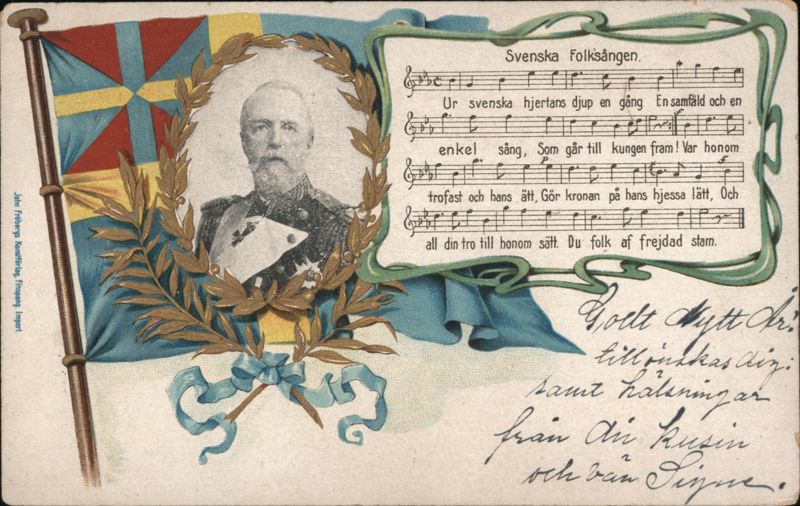 Svenska Folksången.
Ur svenska hjertans djup en gång En samfäld och en
enkel sång, Som går till kungen fram! Var honom
trofast och hans ätt, Gör kronan på hans hjessa lätt, Och
all din tro till honom sätt. Du folk af frejdad stam.
John Fröbergs Konstförlag, Finspong. Import
Godt Nytt År!
tillönskas dig:
samt hälsningar
från din kusin
och vän Signe.